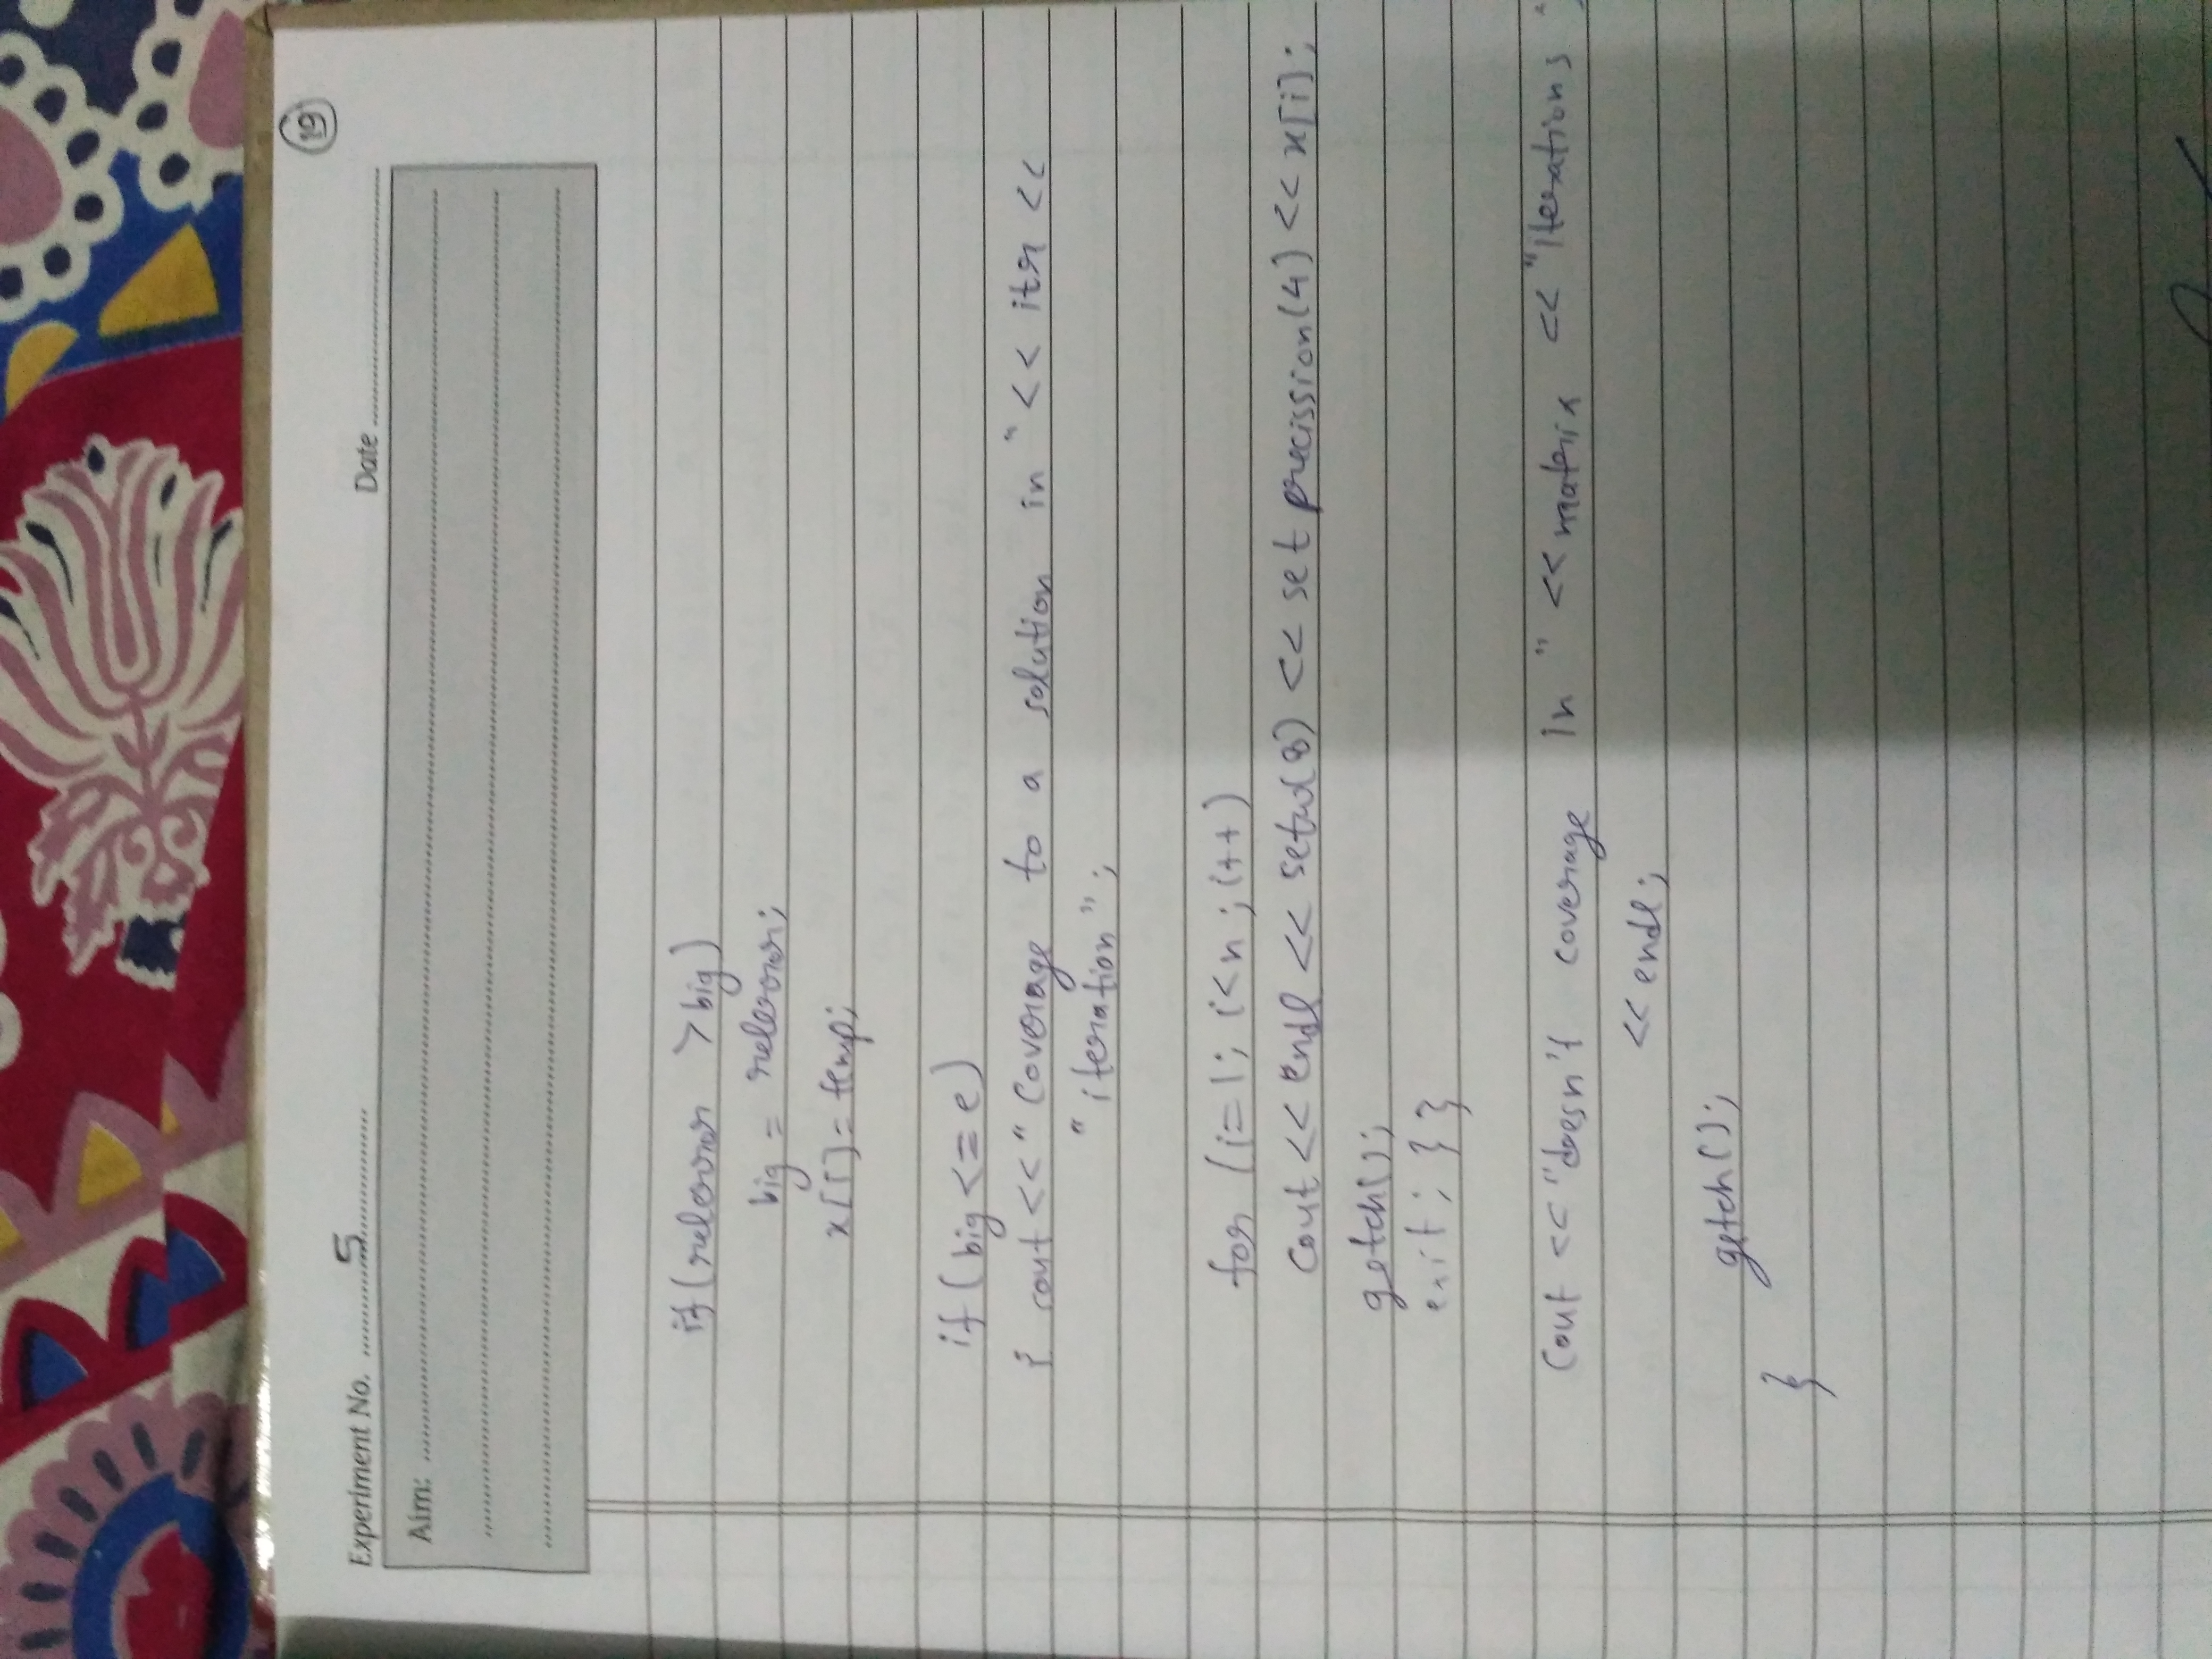 19
Experiment No. 5
Date
Aim:
if (relerror > big)
big = relerror;
x[i] = temp;
if (big <= e)
{ cout << " Coverage to a solution in " << itr <<
" iteration " ;
for (i=1; i<n ; i++)
Cout << endl << setw(8) << set precission(4) << x[i];
getch();
exit; } }
Cout << "doesn't coverage in " << matrix << "Iterations "
<< endl;
getch();
}